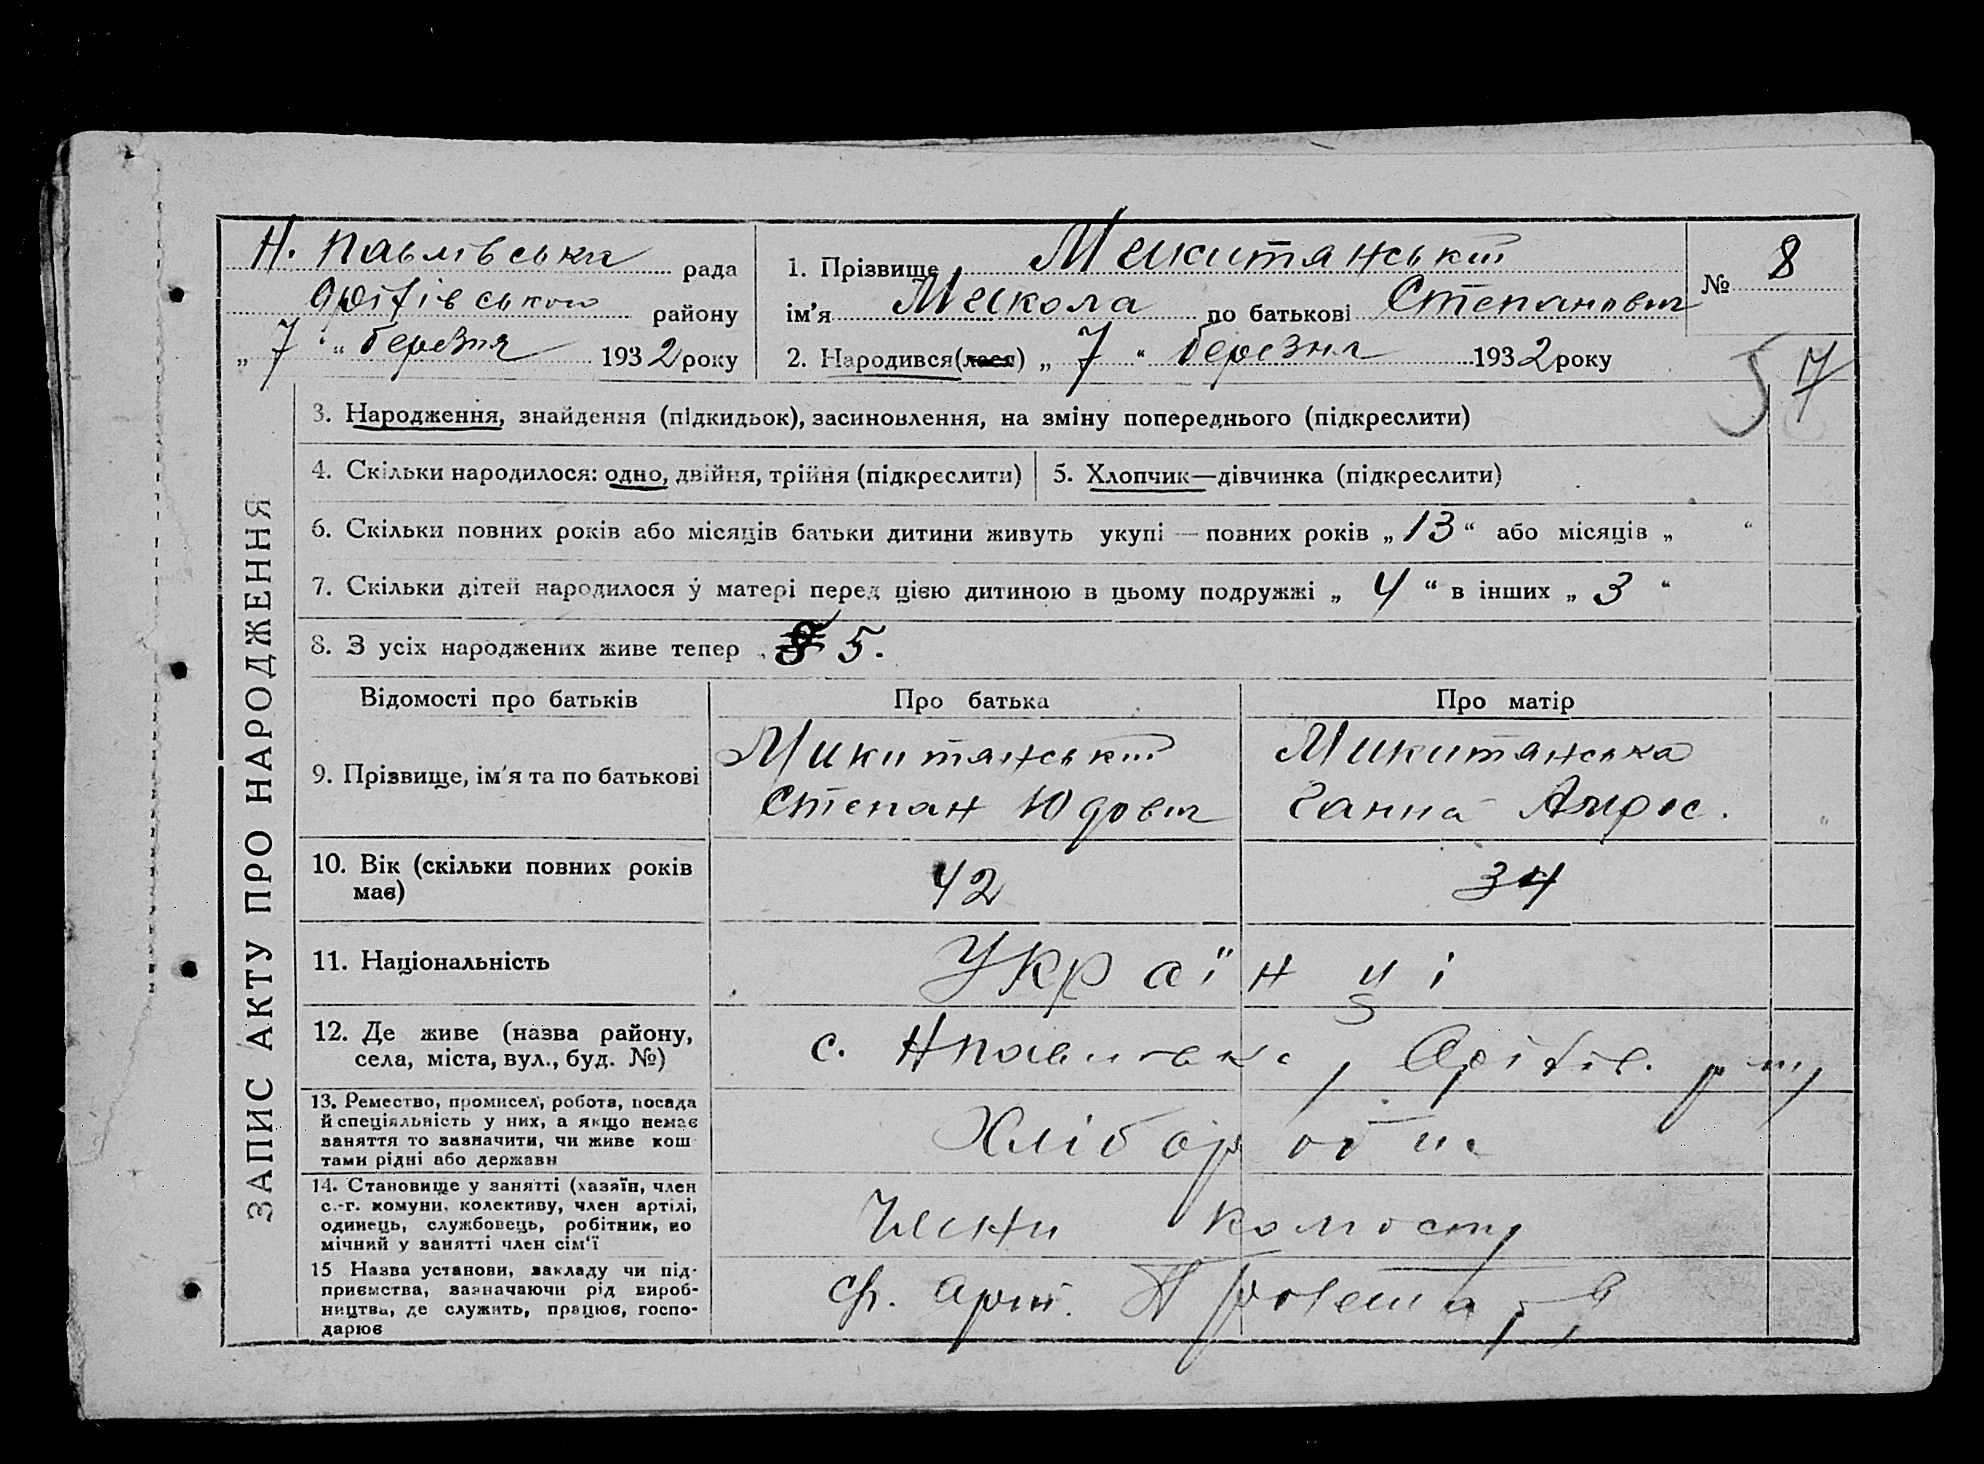 Н. Павлівська рада
Фрітівського району
„ 7 “ березня 1932 року
1. Прізвище Микитянський
ім'я Микола по батькові Степанович
2. Народився(лася) „ 7 “ березня 1932 року
№ 8
57
ЗАПИС АКТУ ПРО НАРОДЖЕННЯ
3. Народження, знайдення (підкидьок), засиновлення, на зміну попереднього (підкреслити)
4. Скільки народилося: одно, двійня, трійня (підкреслити)
5. Хлопчик—дівчинка (підкреслити)
6. Скільки повних років або місяців батьки дитини живуть укупі — повних років „ 13 “ або місяців „ “
7. Скільки дітей народилося у матері перед цією дитиною в цьому подружжі „ 4 “ в інших „ 3 “
8. З усіх народжених живе тепер 5.
Відомості про батьків Про батька Про матір
9. Прізвище, ім'я та по батькові
Микитянський
Степан Юдович
Микитянська
Ганна
10. Вік (скільки повних років
має)
42 34
11. Національність
Українці
12. Де живе (назва району,
села, міста, вул., буд. №)
с. Нпавлівка,
13. Ремество, промисел, робота, посада
й спеціяльність у них, а якщо немає
заняття то зазначити, чи живе кош
тами рідні або держави
Хлібороби
14. Становище у занятті (хазяїн, член
с.-г. комуни, колективу, член артілі,
одинець, службовець, робітник, по
мічний у занятті член сім'ї
Члени колгоспу
15 Назва установи, закладу чи під-
приємства, зазначаючи рід вироб-
ництва, де служить, працює, госпо-
дарює